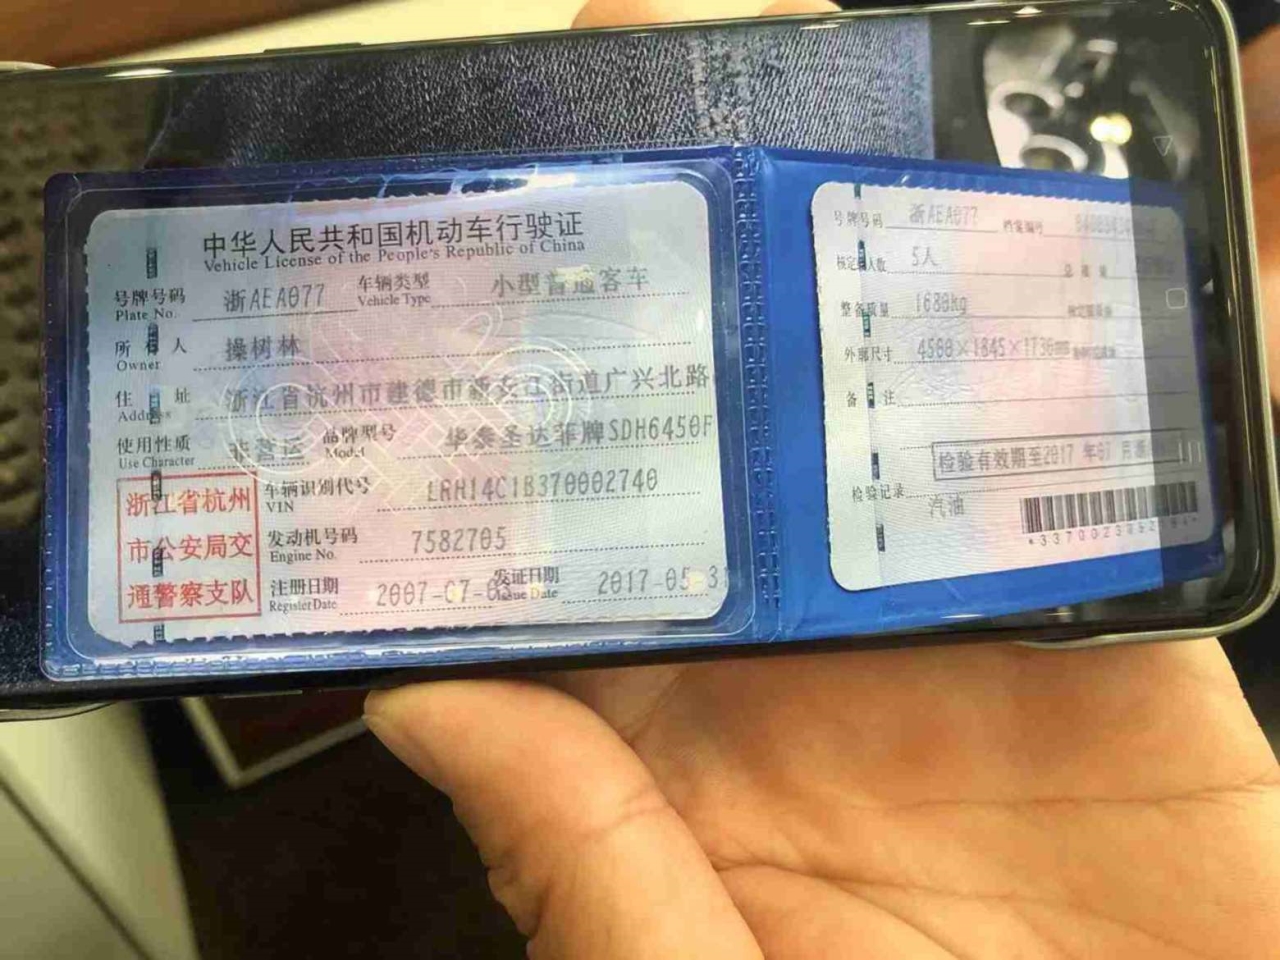 中华人民共和国机动车行驶证
Vehicle License of the People's Republic of China
号牌号码 浙AEA077 车辆类型 小型普通客车
Plate No. Vehicle Type
所 有 人 操树林
Owner
住 址 浙江省杭州市建德市新安江街道广兴北路
Address
使用性质 非营运 品牌型号 华泰圣达菲牌SDH6450F
Use Character Model
浙江省杭州
市公安局交
通警察支队
车辆识别代号 LRH14C1B370002740
VIN
发动机号码 7582705
Engine No.
注册日期 2007-07-0 发证日期 2017-05-31
Register Date Issue Date
号牌号码 浙AEA077 档案编号
核定载人数 5人 总质量
整备质量 1680kg
外廓尺寸 4500×1845×1730mm
备 注
检验有效期至2017 年07 月
检验记录
汽油